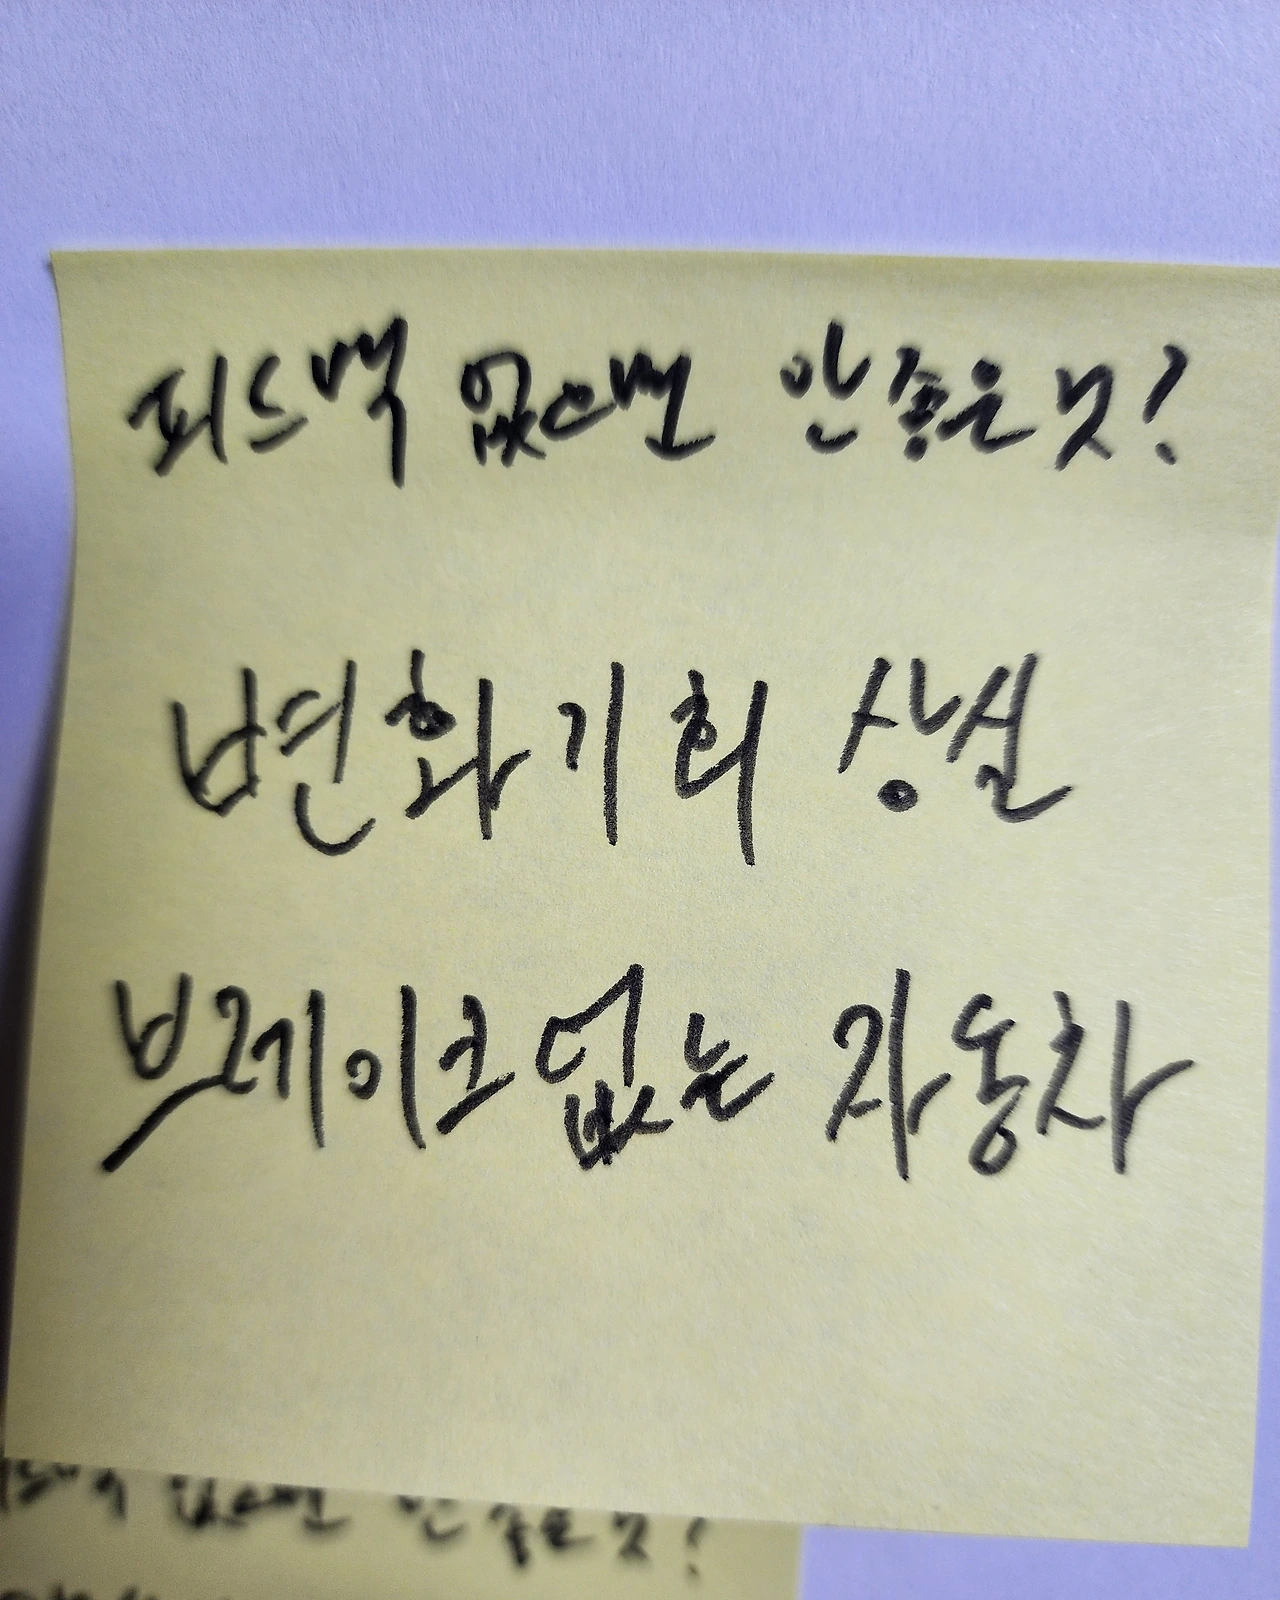 피드백 없으면 안좋은 것?
변화기회 상실
브레이크없는 자동차
없으면 안 좋은 것?